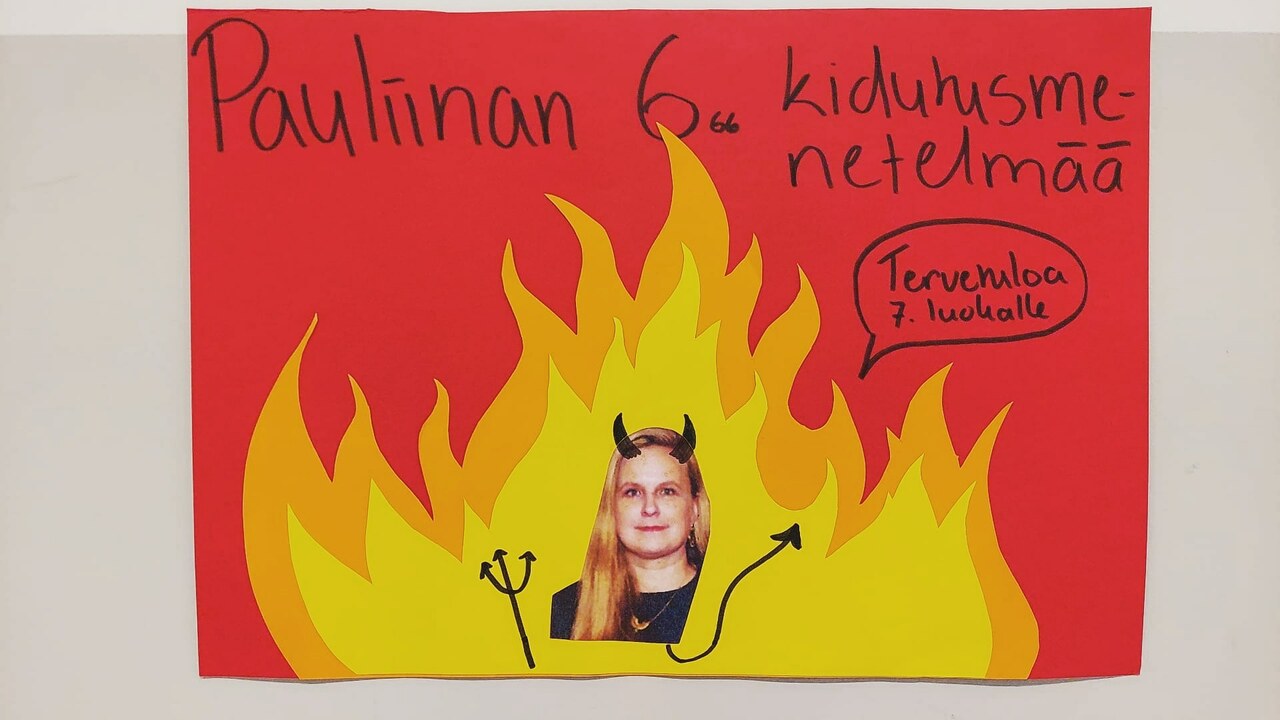 Pauliinan 666 kidutusme-
netelmää
Tervetuloa
7. luokalle